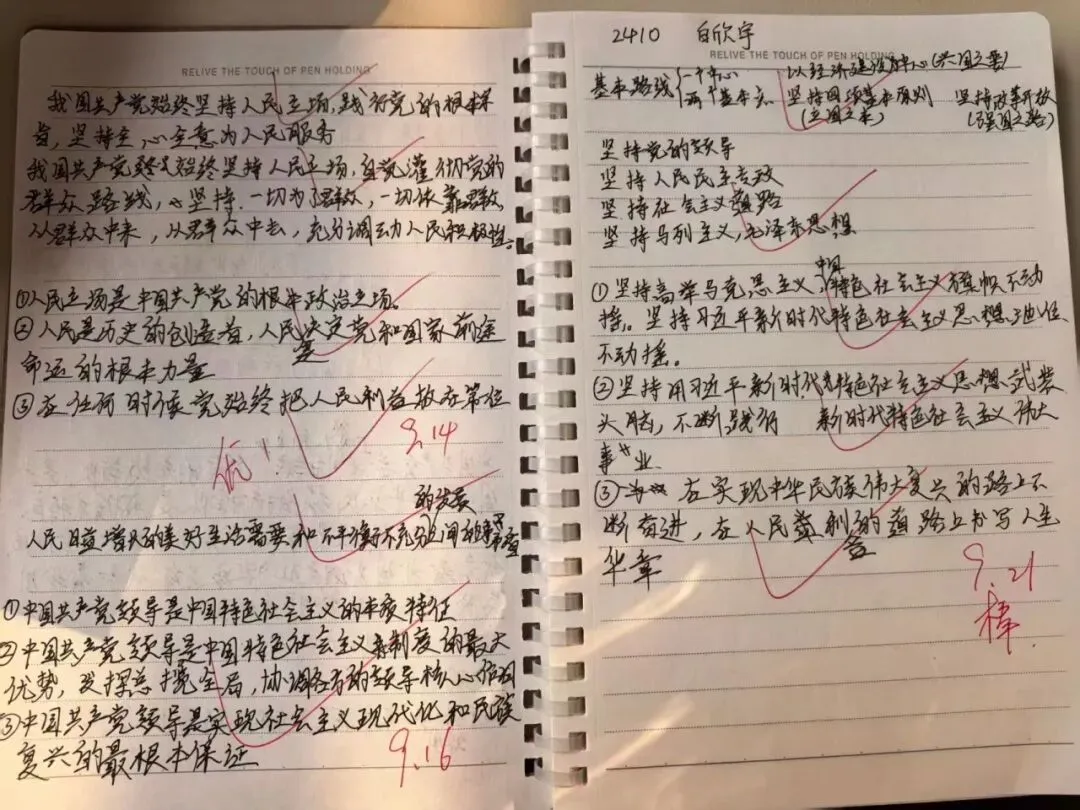 RELIVE THE TOUCH OF PEN HOLDING
我国共产党始终坚持人民立场,践行党的根本宗
旨,坚持全心全意为人民服务
我国共产党始终坚持人民立场,自觉灌彻党的
群众路线,坚持一切为了群众,一切依靠群众,
从群众中来,从群众中去,充分调动人民积极性。
①人民立场是中国共产党的根本政治立场。
②人民是历史的创造者,人民是决定党和国家前途
命运的根本力量
③在任何时候党始终把人民利益放在第一位
优 9.14
的发展
人民日益增长的美好生活需要和不平衡不充分之间的矛盾
①中国共产党领导是中国特色社会主义的本质特征
②中国共产党领导是中国特色社会主义制度的最大
优势,发挥总揽全局,协调各方的领导核心作用
③中国共产党领导是实现社会主义现代化和民族
复兴的最根本保证
9.16
2410 白欣宇
RELIVE THE TOUCH OF PEN HOLDING
基本路线 一个中心 以经济建设为中心(兴国之要)
两个基本点 坚持四项基本原则 坚持改革开放
(立国之本) (强国之路)
坚持党的领导
坚持人民民主专政
坚持社会主义道路
坚持马列主义,毛泽东思想
①坚持高举马克思主义,中国特色社会主义旗帜不动
摇。坚持习近平新时代特色社会主义思想地位
不动摇。
②坚持用习近平新时代特色社会主义思想武装
头脑,不断践行 新时代特色社会主义伟大
事业
③在实现中华民族伟大复兴的路上不
断奋进,在人民益利的道路上书写人生
华章
9.21
棒